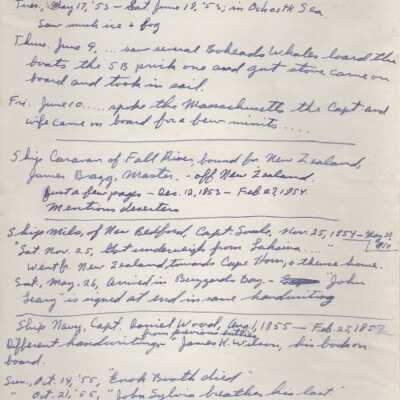 Tues., May 17, '53 – Sat June 18, '53; in Ochostk Sea.
Saw much ice & fog
Thus. June 9, ... saw several Boheads Whales loard the
boats the SB prick one and gut stove came on
board and took in sail.
Fri. June 10..... spoke the Massachusetts the Capt and
wife came on board for a few minits.....
Ship Caravan of Fall River, bound for New Zealand,
James Bragg, Master. – off New Zealand.
Just a few pages – Dec. 12, 1853 – Feb 27, 1854.
Mentions deserters
Ship Milo, of New Bedford, Capt. Soule, Nov. 25, 1854 – May 26,
"Sat. Nov. 25, Got underweigh from Lahaina....."
Went fr. New Zealand, towards Cape Horn, & thence home.
Sat. May. 26, arrived in Buzzards Bay – "John
Leary" is signed at end in same handwriting
Ship Navy, Capt. Daniel Wood, Aug 1, 1855 – Feb 22, 1857
Different handwriting from previous entries "James K. Wilson, his book on
board.
Sun., Oct. 14, '55, "Enok Booth died"
" Oct. 21, '55, "John Sylvia breathes his last."